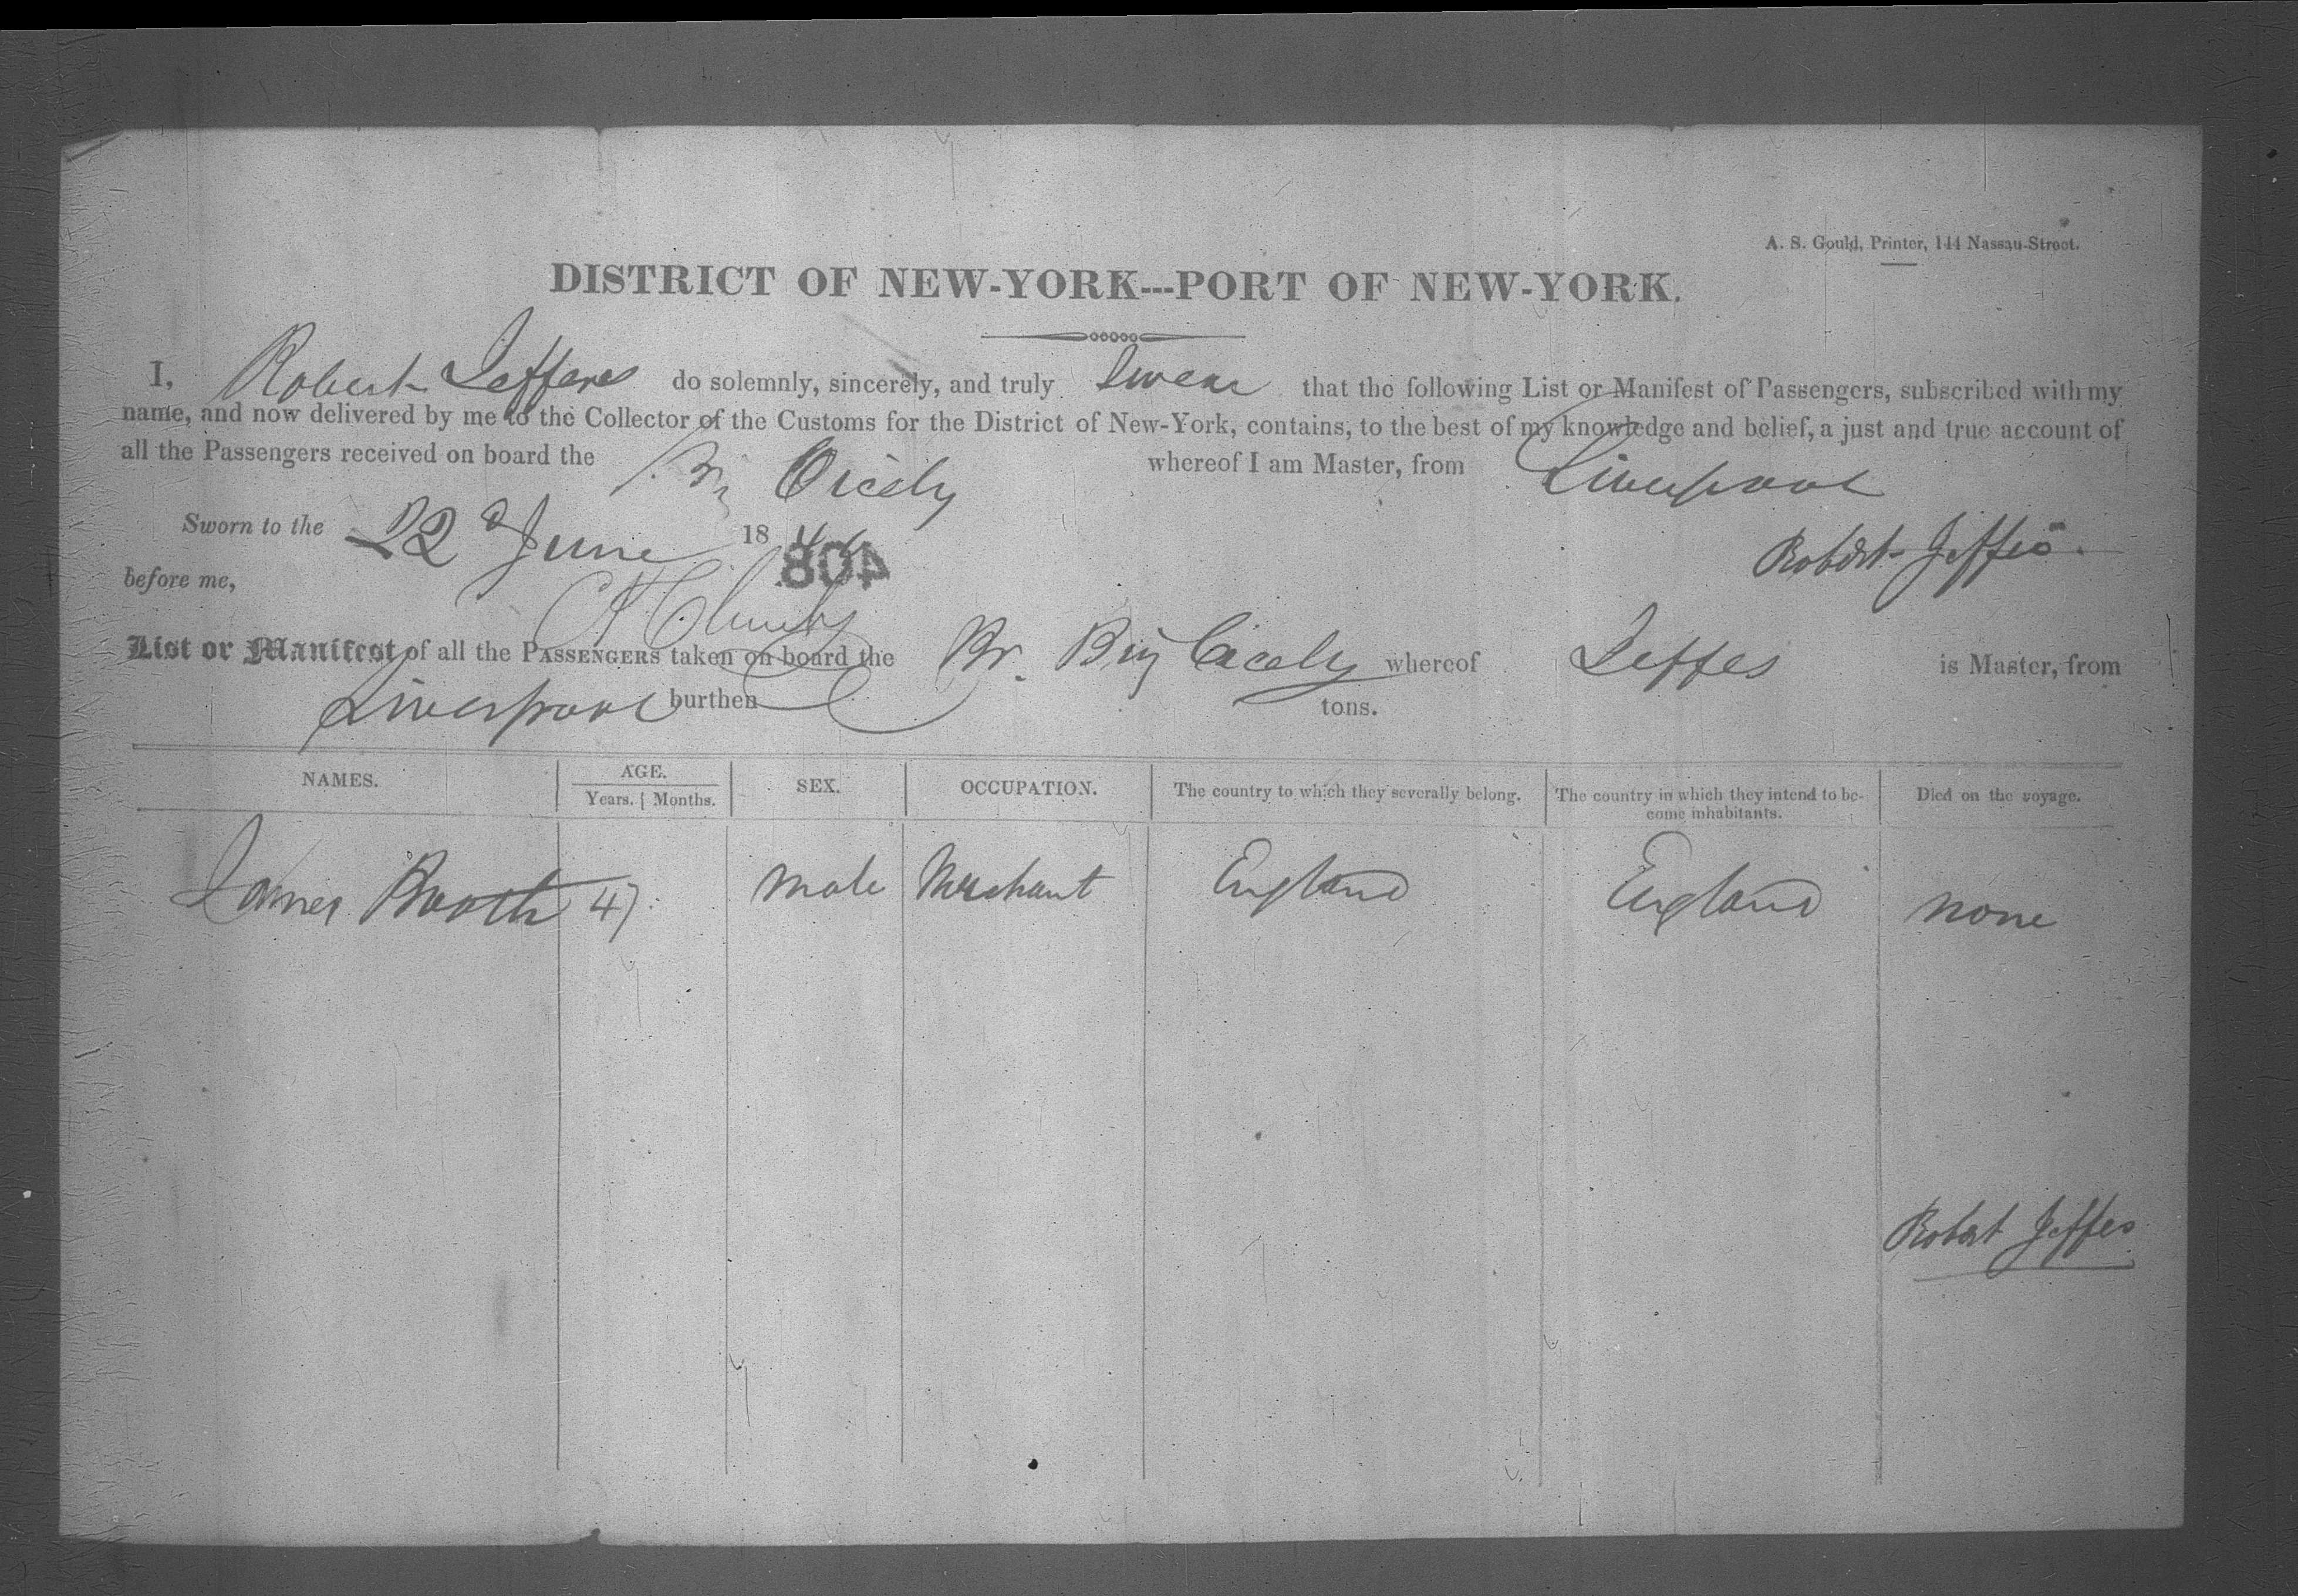 A. S. Gould, Printer, 144 Nassau-Street.
DISTRICT OF NEW-YORK---PORT OF NEW-YORK.
I, Robert Jefferes do solemnly, sincerely, and truly Swear that the following List or Manifest of Passengers, subscribed with my
name, and now delivered by me to the Collector of the Customs for the District of New-York, contains, to the best of my knowledge and belief, a just and true account of
all the Passengers received on board the Cicely whereof I am Master, from Liverpool
Sworn to the 22d June 18
408
Robert Jeffes
before me,
List or Manifest of all the PASSENGERS taken on board the Br. Brig Cicely whereof Jeffes is Master, from
Liverpool burthen tons.
NAMES. AGE. Years. Months. SEX. OCCUPATION. The country to which they severally belong. The country in which they intend to become inhabitants. Died on the voyage.
James Booth 47 male Merchant England England none
Robert Jeffes